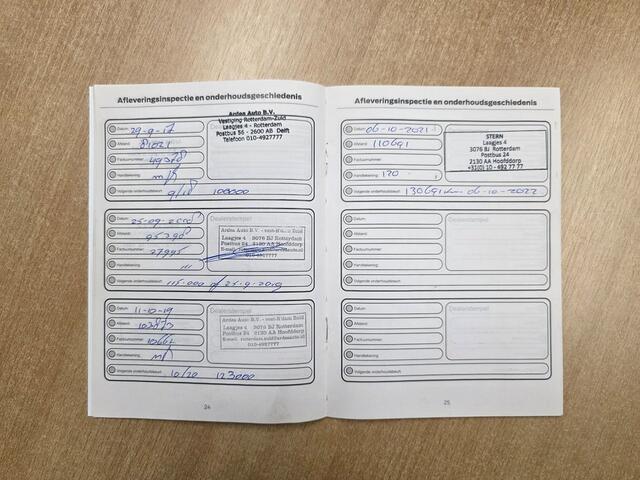 Afleveringsinspectie en onderhoudsgeschiedenis
Datum: 29-9-17
Afstand: 81021
Factuurnummer: 49378
Handtekening:
Volgende onderhoudsbeurt: 9/18 100000
Ardea Auto B.V.
Vestiging Rotterdam-Zuid
Laagjes 4 - Rotterdam
Postbus 56 - 2600 AB Delft
Telefoon 010-4927777
Datum: 25-09-2018
Afstand: 95298
Factuurnummer: 27995
Handtekening:
Volgende onderhoudsbeurt: 115.000 of 25-9-2019
Dealerstempel
Ardea Auto B.V. - vest-R'dam Zuid
Laagjes 4 3076 BJ Rotterdam
Postbus 24 2130 AA Hoofddorp
E-mail:
010-4927777
Datum: 11-10-19
Afstand: 103873
Factuurnummer: 10661
Handtekening:
Volgende onderhoudsbeurt: 10/20 123000
Dealerstempel
Ardea Auto B.V. - vest-R'dam Zuid
Laagjes 4 3076 BJ Rotterdam
Postbus 24 2130 AA Hoofddorp
E-mail: rotterdam.zuid@ardeaauto.nl
010-4927777
24
Afleveringsinspectie en onderhoudsgeschiedenis
Datum: 06-10-2021
Afstand: 110691
Factuurnummer:
Handtekening: 120
Volgende onderhoudsbeurt: 130691 km 06-10-2022
STERN
Laagjes 4
3076 BJ Rotterdam
Postbus 24
2130 AA Hoofddorp
+31(0) 10 - 492 77 77
Datum:
Afstand:
Factuurnummer:
Handtekening:
Volgende onderhoudsbeurt:
Dealerstempel
Datum:
Afstand:
Factuurnummer:
Handtekening:
Volgende onderhoudsbeurt:
Dealerstempel
25